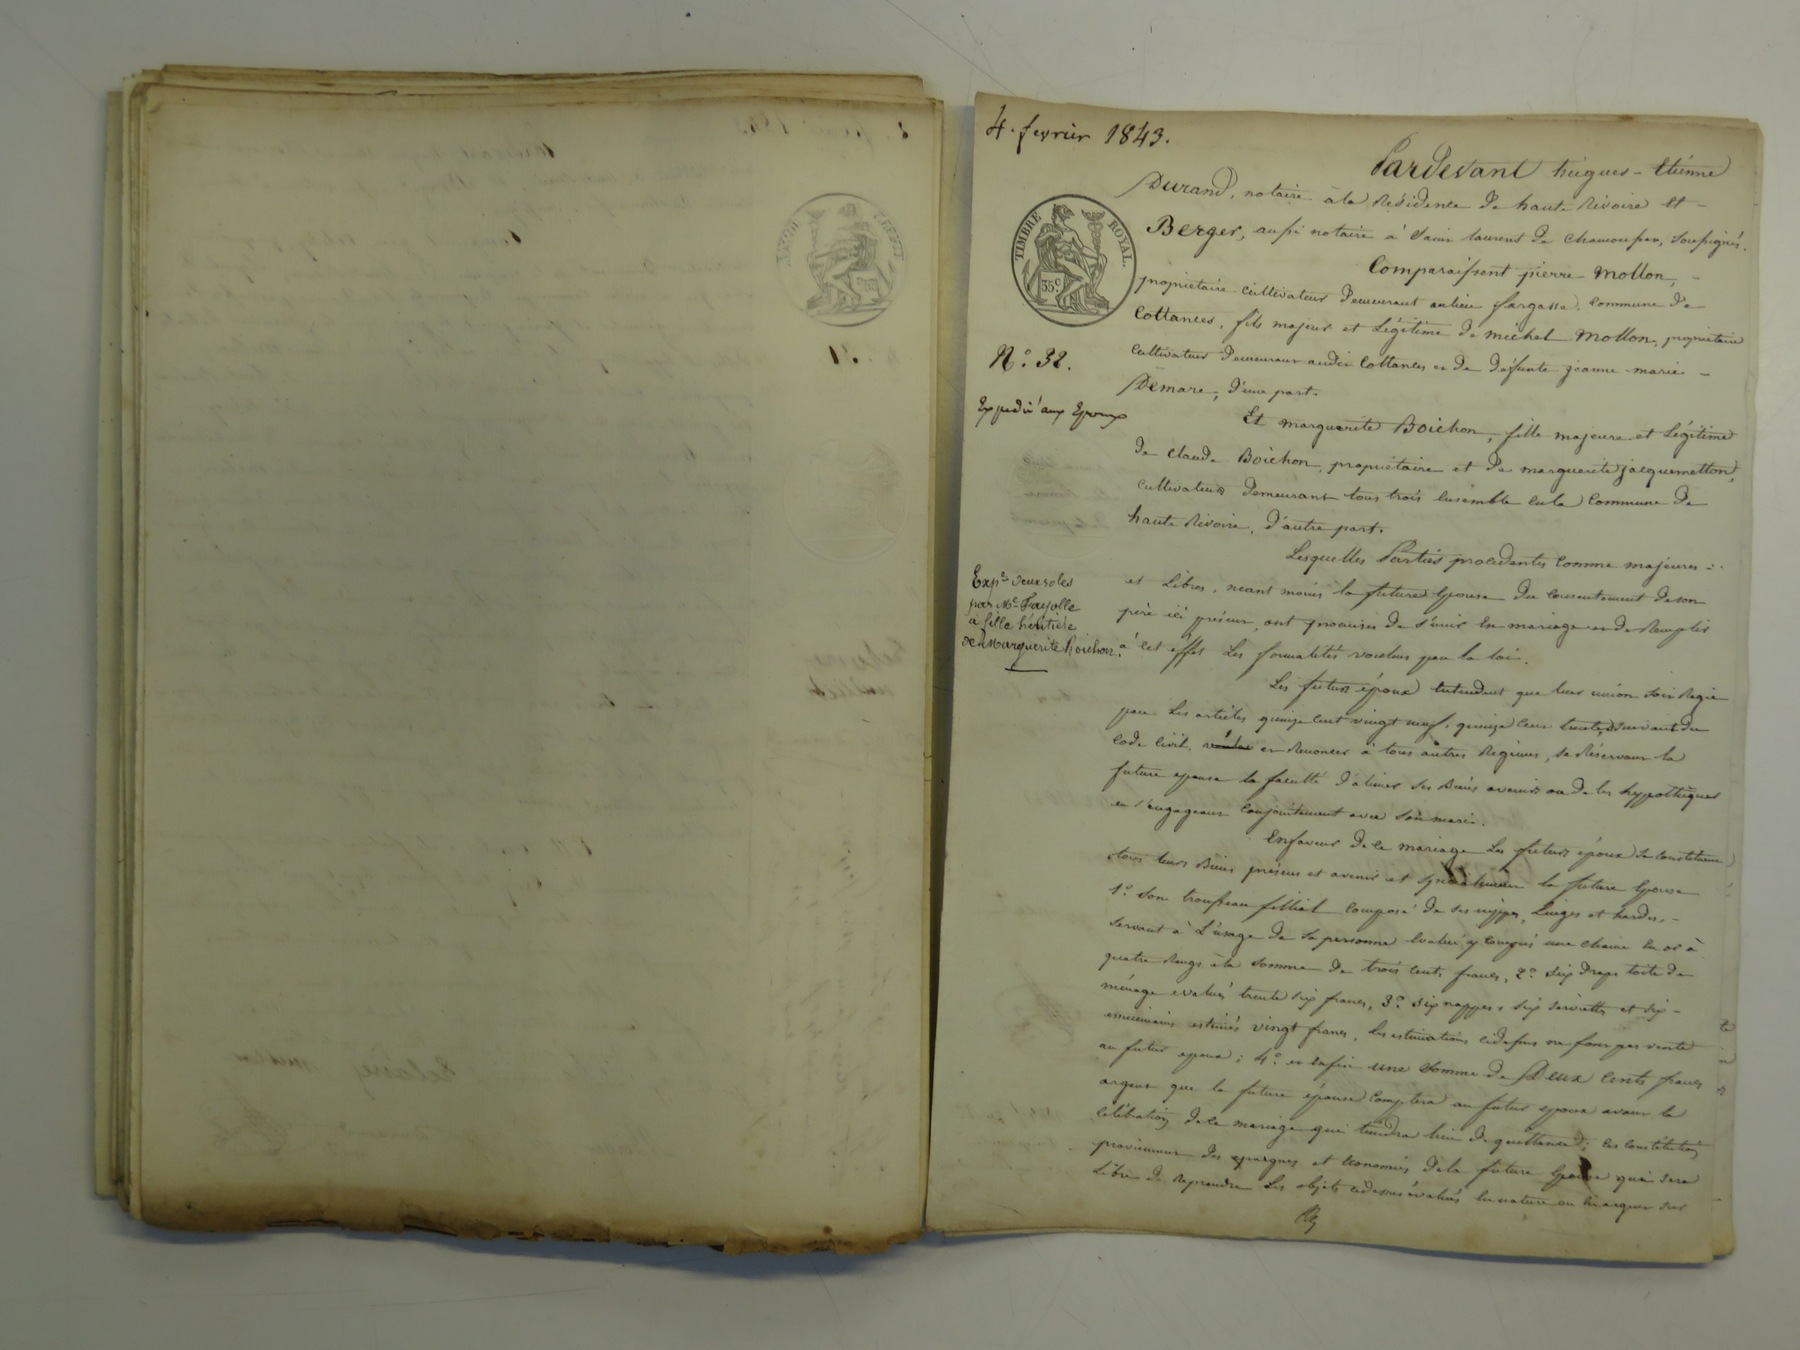 4. fevrier 1843.
Pardevant hugues-Etienne
Durand, notaire à la Résidence de haute Rivoire et
Berger, aussi notaire à Saint laurent de Chamousset, soussignés.
TIMBRE ROYAL.
35.C
Comparaissent pierre Mollon,
propriétaire cultivateur demeurant au lieu fargasse, commune de
Cottances, fils majeur et Légitime de michel Mollon, propriétaire
Cultivateur demeurant audit Cottances et de défunte jeanne-marie
N.o 32.
Demare, d'une part.
Expedié aux Epoux
Et marguerite Boichon, fille majeure et Légitime
de claude Boichon, propriétaire et de marguerite jacquemetton,
cultivateurs demeurant tous trois ensemble en la Commune de
haute Rivoire, d'autre part.
Lesquelles Parties procedentes comme majeures
Exp.e
par Me Fayolle
à fille héritière
de Marguerite Boichon.
et Libres, neant moins la future Epouse du consentement de son
père ici présent, ont promises de s'unir en mariage et de Remplir
à cet effet Les formalités voulues par la loi.
Les futurs époux entendent que leur union soit Régie
par Les articles quinze cent vingt neuf, quinze cent trente et suivant du
Code Civil, et Renoncer à tous autres Regimes, se Réservant la
future epouse la faculté d'aliener ses Biens avenirs ou de les hypothéquer
en s'engageant conjointement avec son mari.
En faveur de ce mariage Les futurs époux se constituent
tous leurs Biens présens et avenir et spécialement la future Epouse
1.o Son trousseau fillial composé de ses nippes, Linges et hardes,
servant à L'usage de sa personne Evalué y compris une chaine en or à
quatre Rangs à la somme de trois cents francs, 2.o Six draps toile de
ménage evalués trente six francs, 3.o Six nappes, six serviettes et six
essuiemains estimés vingt francs, Les estimations cidessus ne font pas vente
au futur epoux; 4.o et enfin une Somme de Deux Cents francs
argent que la future épouse comptera au futur epoux avant la
célébration de ce mariage qui tiendra lieu de quittance; ces constitutions
proviennent des epargnes et Economies de la future Epouse qui sera
Libre de Reprendre Les objets cidessus évalués en nature ou